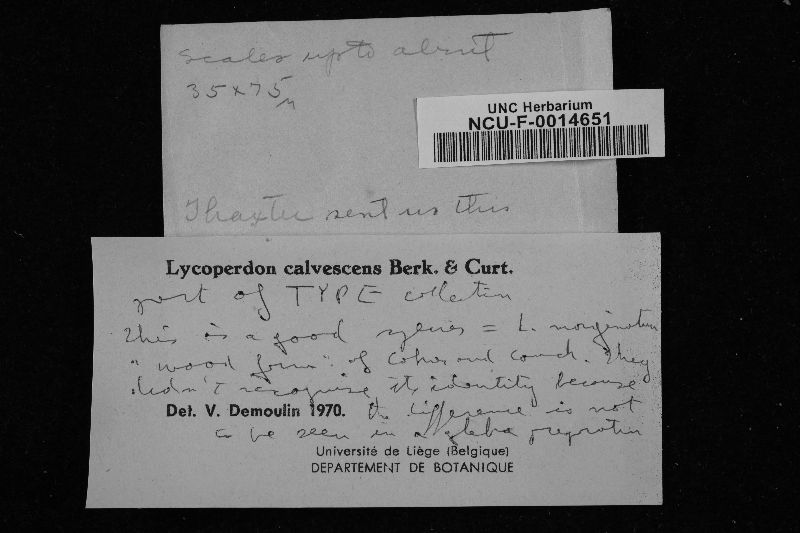 scales up to about
35 x 75 μ
UNC Herbarium
NCU-F-0014651
Thaxter sent us this
Lycoperdon calvescens Berk. & Curt.
part of TYPE collection
This is a good species = L. marginatum
"wood form" of Coker and Couch. They
didn't recognise its identity because
Det. V. Demoulin 1970. the difference is not
to be seen in a gleba preparation
Université de Liège (Belgique)
DEPARTEMENT DE BOTANIQUE